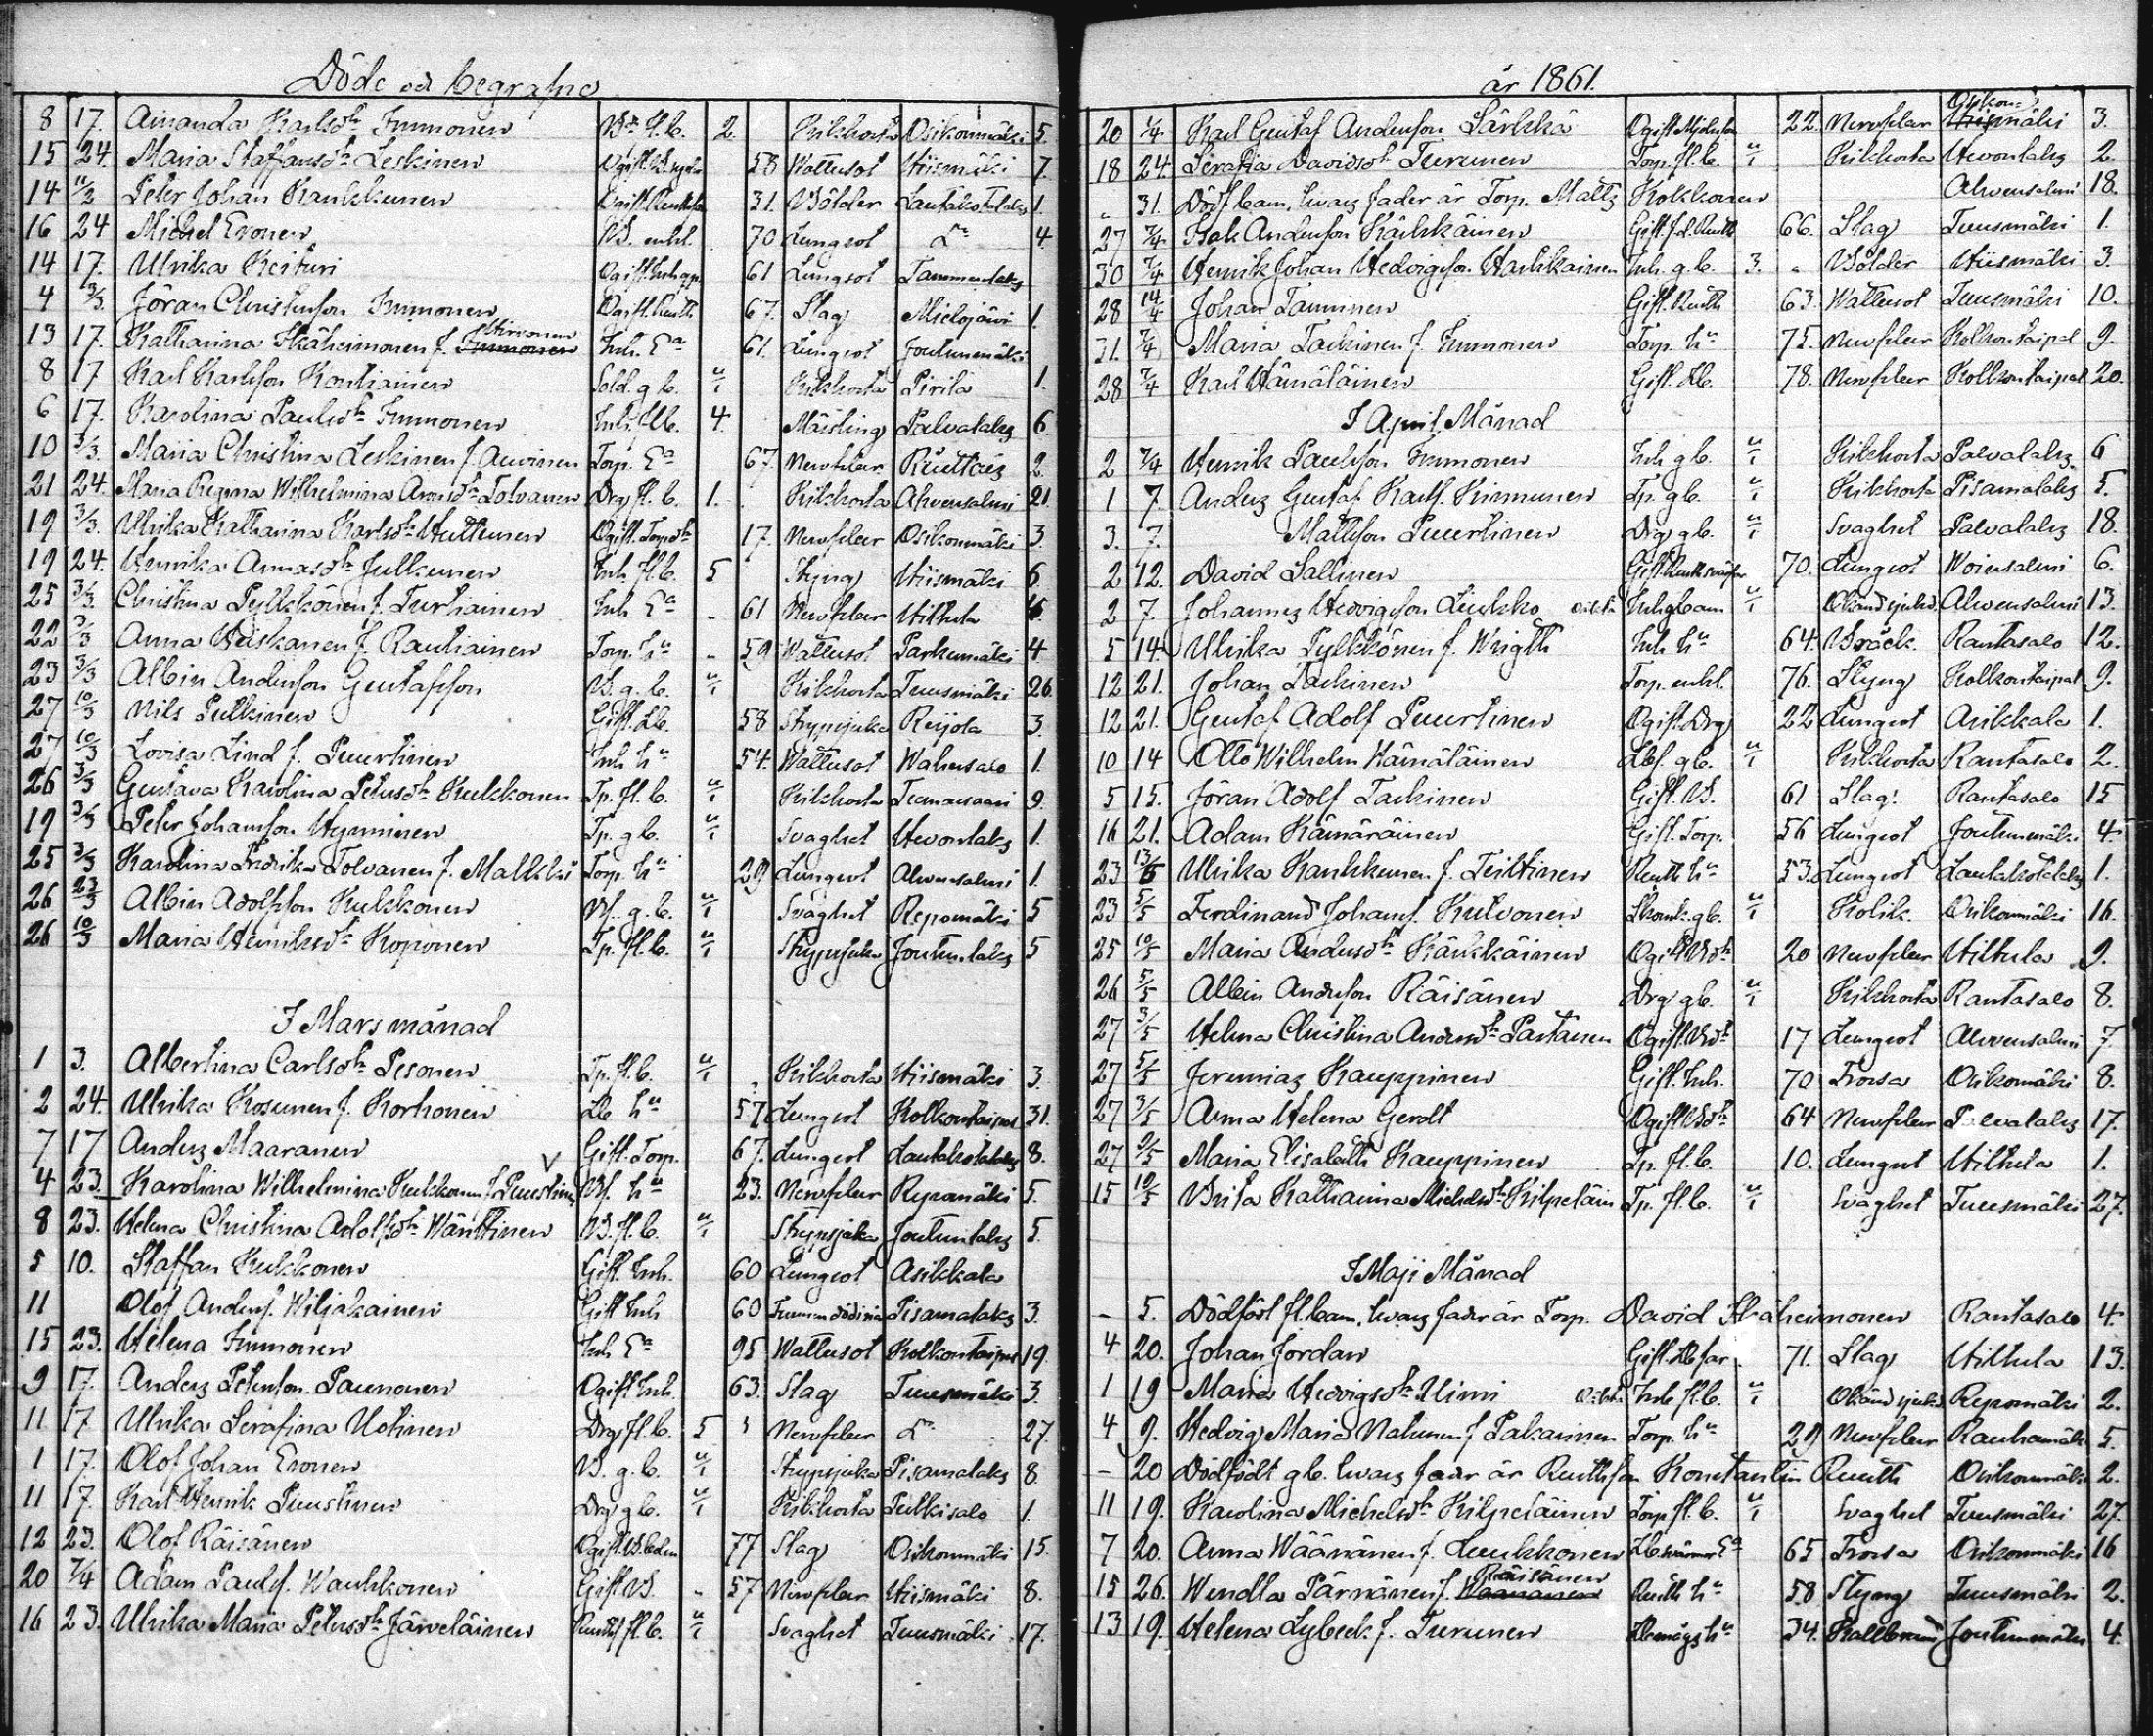 Döde och begrafne
8 17. Amanda Karlsdr Immonen Bd. fl. b. 2. Kikhosta Oisikonmäki 5.
15 24. Maria Staffansdr Leskinen 58 Wattusot Hiismäki 7.
14 11/2 Peter Johan Kaukkunen 31. Bölder Lautakotalaks 1.
16 24 Michel Eronen Bd. enkl. 70 Lungsot Do 4
14 17. Ulrika Keituri 61 Lungsot Tammenlaks
4 3/3. Jöran Christerson Immonen Ogift. Reuth 67. Slag Mielojärvi 1.
13 17. Katharina Ikäheimonen f. Hirvonen Inh. Ea 61. Lungsot Joutenmäki
8 17 Karl Karlsson Kontiainen Sold. g b. 11/1 Kikhosta Pirilä 1.
6 17. Karolina Paulsdr Immonen Inh. fl b. 4. Mässling Palvalaks 6.
10 3/3. Maria Christina Leskinen f. Auvinen Torp. Ea 67. Nervfeber 2.
21 24. Maria Regina Wilhelmina Tolvanen Drg fl. b. 1. Kikhosta Ahvensalmi 21.
19 3/3. Ulrika Katharina Karlsdr Huttunen Ogift. Torpdr 17. Nervfeber Osikonmäki 3.
19 24. Henrika Annasdr Julkunen Inh. fl. b. 5 Styng Hiismäki 6.
25 3/3. Christina Pylkkönen f. Turtiainen Inh. Ea 61 Nervfeber Hiltula
22 3/3 Anna Heiskanen f. Rautiainen Torp. hu 59 Wattusot Parkumäki 4.
23 3/3 Albin Anderson Gustafson B. g. b. 11/1 Kikhosta Tuusmäki 26.
27 10/3 Nils Pulkinen Gift. Lb. 58 Strypsjuka Reijola 3.
27 10/3 Lovisa Lind f. Puurtinen Inh hu 54. Wattusot Wahersalo 1.
26 3/3 Gustava Karolina Petersdr Kukkonen Tp. fl. b. 11/1 Kikhosta 9.
19 3/3 Peter Johansson Hynninen Tp. g b. 11/1 Svaghet Hevonlaks 1.
25 3/3 Karolina Fredrika Tolvanen f. Malkki Torp. hu 29 Lungsot Ahvensalmi 1.
26 23/3 Albin Adolfsson Kukkonen Bf. g. b. 11/1 Svaghet Repomäki 5
26 10/3 Maria Henriksdr Koponen Tp. fl. b. 11/1 Strypsjuka Joutenlaks 5
I Mars månad
1 3. Albertina Carlsdr Pesonen Tp. fl. b. 11/1 Kikhosta Hiismäki 3.
2 24. Ulrika Kosunen f. Korhonen Lb hu 57 Lungsot Kolkontaipal 31.
7 17 Anders Maaranen Gift. Torp. 67. Lungsot Lautakotalaks 8.
4 23. Karolina Wilhelmina Kukkonen f. Puurtinen Bf. hu 23. Nervfeber Repomäki 5.
8 23. Helena Christina Adolfsdr Wänttinen B. fl. b. 11/1 Strypsjuka Joutenlaks 5.
5 10. Staffan Kukkonen Gift. Inh. 60 Lungsot Asikkala
11 Olof Andersf. Wiljakainen Gift Inh 60 Funnen död Pisamalaks 3.
15 23. Helena Immonen Inh Ea 95 Wattusot Kolkontaipal 19.
9 17. Anders Peterson Paunonen Ogift Inh. 63. Slag Tuusmäki 3.
11 17. Ulrika Serafina Uotinen Drg. fl. b. 5 Nervfeber Do 27.
1 17. Olof Johan Eronen B. g. b. 11/1 Strypsjuka Pisamalaks 8
11 17. Karl Henrik Puustinen Drg g b. 11/1 Kikhosta Pulkisalo 1.
12 23. Olof Räisänen 77 Slag Osikonmäki 15.
20 7/4 Adam Paulsf. Waukkonen Gift B. 57 Nervfeber Hiismäki 8.
16 23. Ulrika Maria Petersdr Järveläinen fl. b. 11/1 Svaghet Tuusmäki 17.
år 1861.
20 1/4 Karl Gustaf Anderson Särkkä 22. Nervfeber Osikonmäki 3.
18 24. Serafia Davidsdr Turunen Torp. fl. b. 11/1 Kikhosta Hevonlaks 2.
" 31. Dödf. barn, hvars fader är Torp. Matts Kokkonen Ahvensalmi 18.
27 7/4 Isak Anderson Kärkkäinen 66. Slag Tuusmäki 1.
30 7/4 Henrik Johan Hedvigson Harkkainen Inh. g. b. 3. Bölder Hiismäki 3.
28 14/4 Johan Tanninen Gift. Reuth 63. Wattusot Tuusmäki 10.
31. 7/4 Maria Laukinen f. Immonen Torp. hu 75. Nervfeber Kolkontaipal 9.
28 7/4 Karl Hämäläinen Gift. Lb. 78. Nervfeber Kolkontaipal 20.
I April Månad
2 7/4 Henrik Paulson Immonen Inh g b. 11/1 Kikhosta Palvalaks 6
1 7. Anders Gustaf Karlf. Kinnunen Tp. g b. 11/1 Kikhosta Pisamalaks 5.
3. 7. Mattson Puurtinen Drg g b. 11/1 Svaghet Palvalaks 18.
2 12. David Sallinen 70. Lungsot Woinsalmi 6.
2 7. Johannes Hedvigson Liukko oäkta Inh g barn 11/1 Okänd sjukd. Ahvensalmi 13.
5 14. Ulrika Pylkkönen f. Wrigth Inh hu 64. Bräck. Rantasalo 12.
12 21. Johan Laukinen Torp. enkl. 76. Styng Kolkontaipal 9.
12 21. Gustaf Adolf Puurtinen Ogift Drg 22 Lungsot Asikkala 1.
10 14 Otto Wilhelm Hämäläinen Lbf. g b. 11/1 Kikhosta Rantasalo 2.
5 15. Jöran Adolf Laukinen Gift. B. 61 Slag. Rantasalo 15
16 21. Adam Kämäräinen Gift. Torp. 56 Lungsot Joutenmäki 4.
23 13/5 Ulrika Kaukkunen f. Teittinen Reuth hu 53. Lungsot Lautakotalaks 1.
23 5/5 Ferdinand Johansf. Kulvonen g b. 11/1 Kolik Osikonmäki 16.
25 10/5 Maria Andersdr Kärkkäinen Ogift Bdr 20 Nervfeber Hiltula 9.
26 5/5 Albin Anderson Räisänen Drg g b. 11/1 Kikhosta Rantasalo 8.
27 3/5 Helena Christina Andersdr Partanen Ogift. Bdr 17 Lungsot Ahvensalmi 7.
27 5/5 Jeremias Kauppinen Gift. Inh. 70 Frossa Osikonmäki 8.
27 3/5 Anna Helena Gerdt Ogift Bdr 64 Nervfeber Palvalaks 17.
27 9/5 Maria Elisabeth Kauppinen Tp. fl. b. 10. Lungsot Hiltula 1.
15 10/5 Brita Katharina Michelsdr Kilpeläin Tp. fl. b. 11/1 Svaghet Tuusmäki 27.
I Maji Månad
– 5. Dödföst fl. barn, hvars fader är Torp. David Ikäheimonen Rantasalo 4.
4 20. Johan Jordan Gift. Lb far 71. Slag Hiltula 13.
1 19 Maria Hedvigsdr Ulini oäkta Inh fl. b. 11/1 Okänd sjukd. Repomäki 2.
4 9. Hedvig Maria Nahinen f. Pakarinen Torp. hu 29 Nervfeber Rauhamäki 5.
– 20 Dödfödt gb. hvars fader är Konstantin Reuth Osikonmäki 2.
11 19. Karolina Michelsdr Kilpeläinen Torp fl. b. 11/1 Svaghet Tuusmäki 27.
7 20. Anna Wäänänen f. Luukkonen 65 Frossa Osikonmäki 16
15 26. Wendla Pärnänen f. Räisänen Reuth hu 58 Styng Tuusmäki 2.
13 19. Helena Lybeck f. Turunen Lbmågs hu 34. Kallbrand Joutenmäki 4.